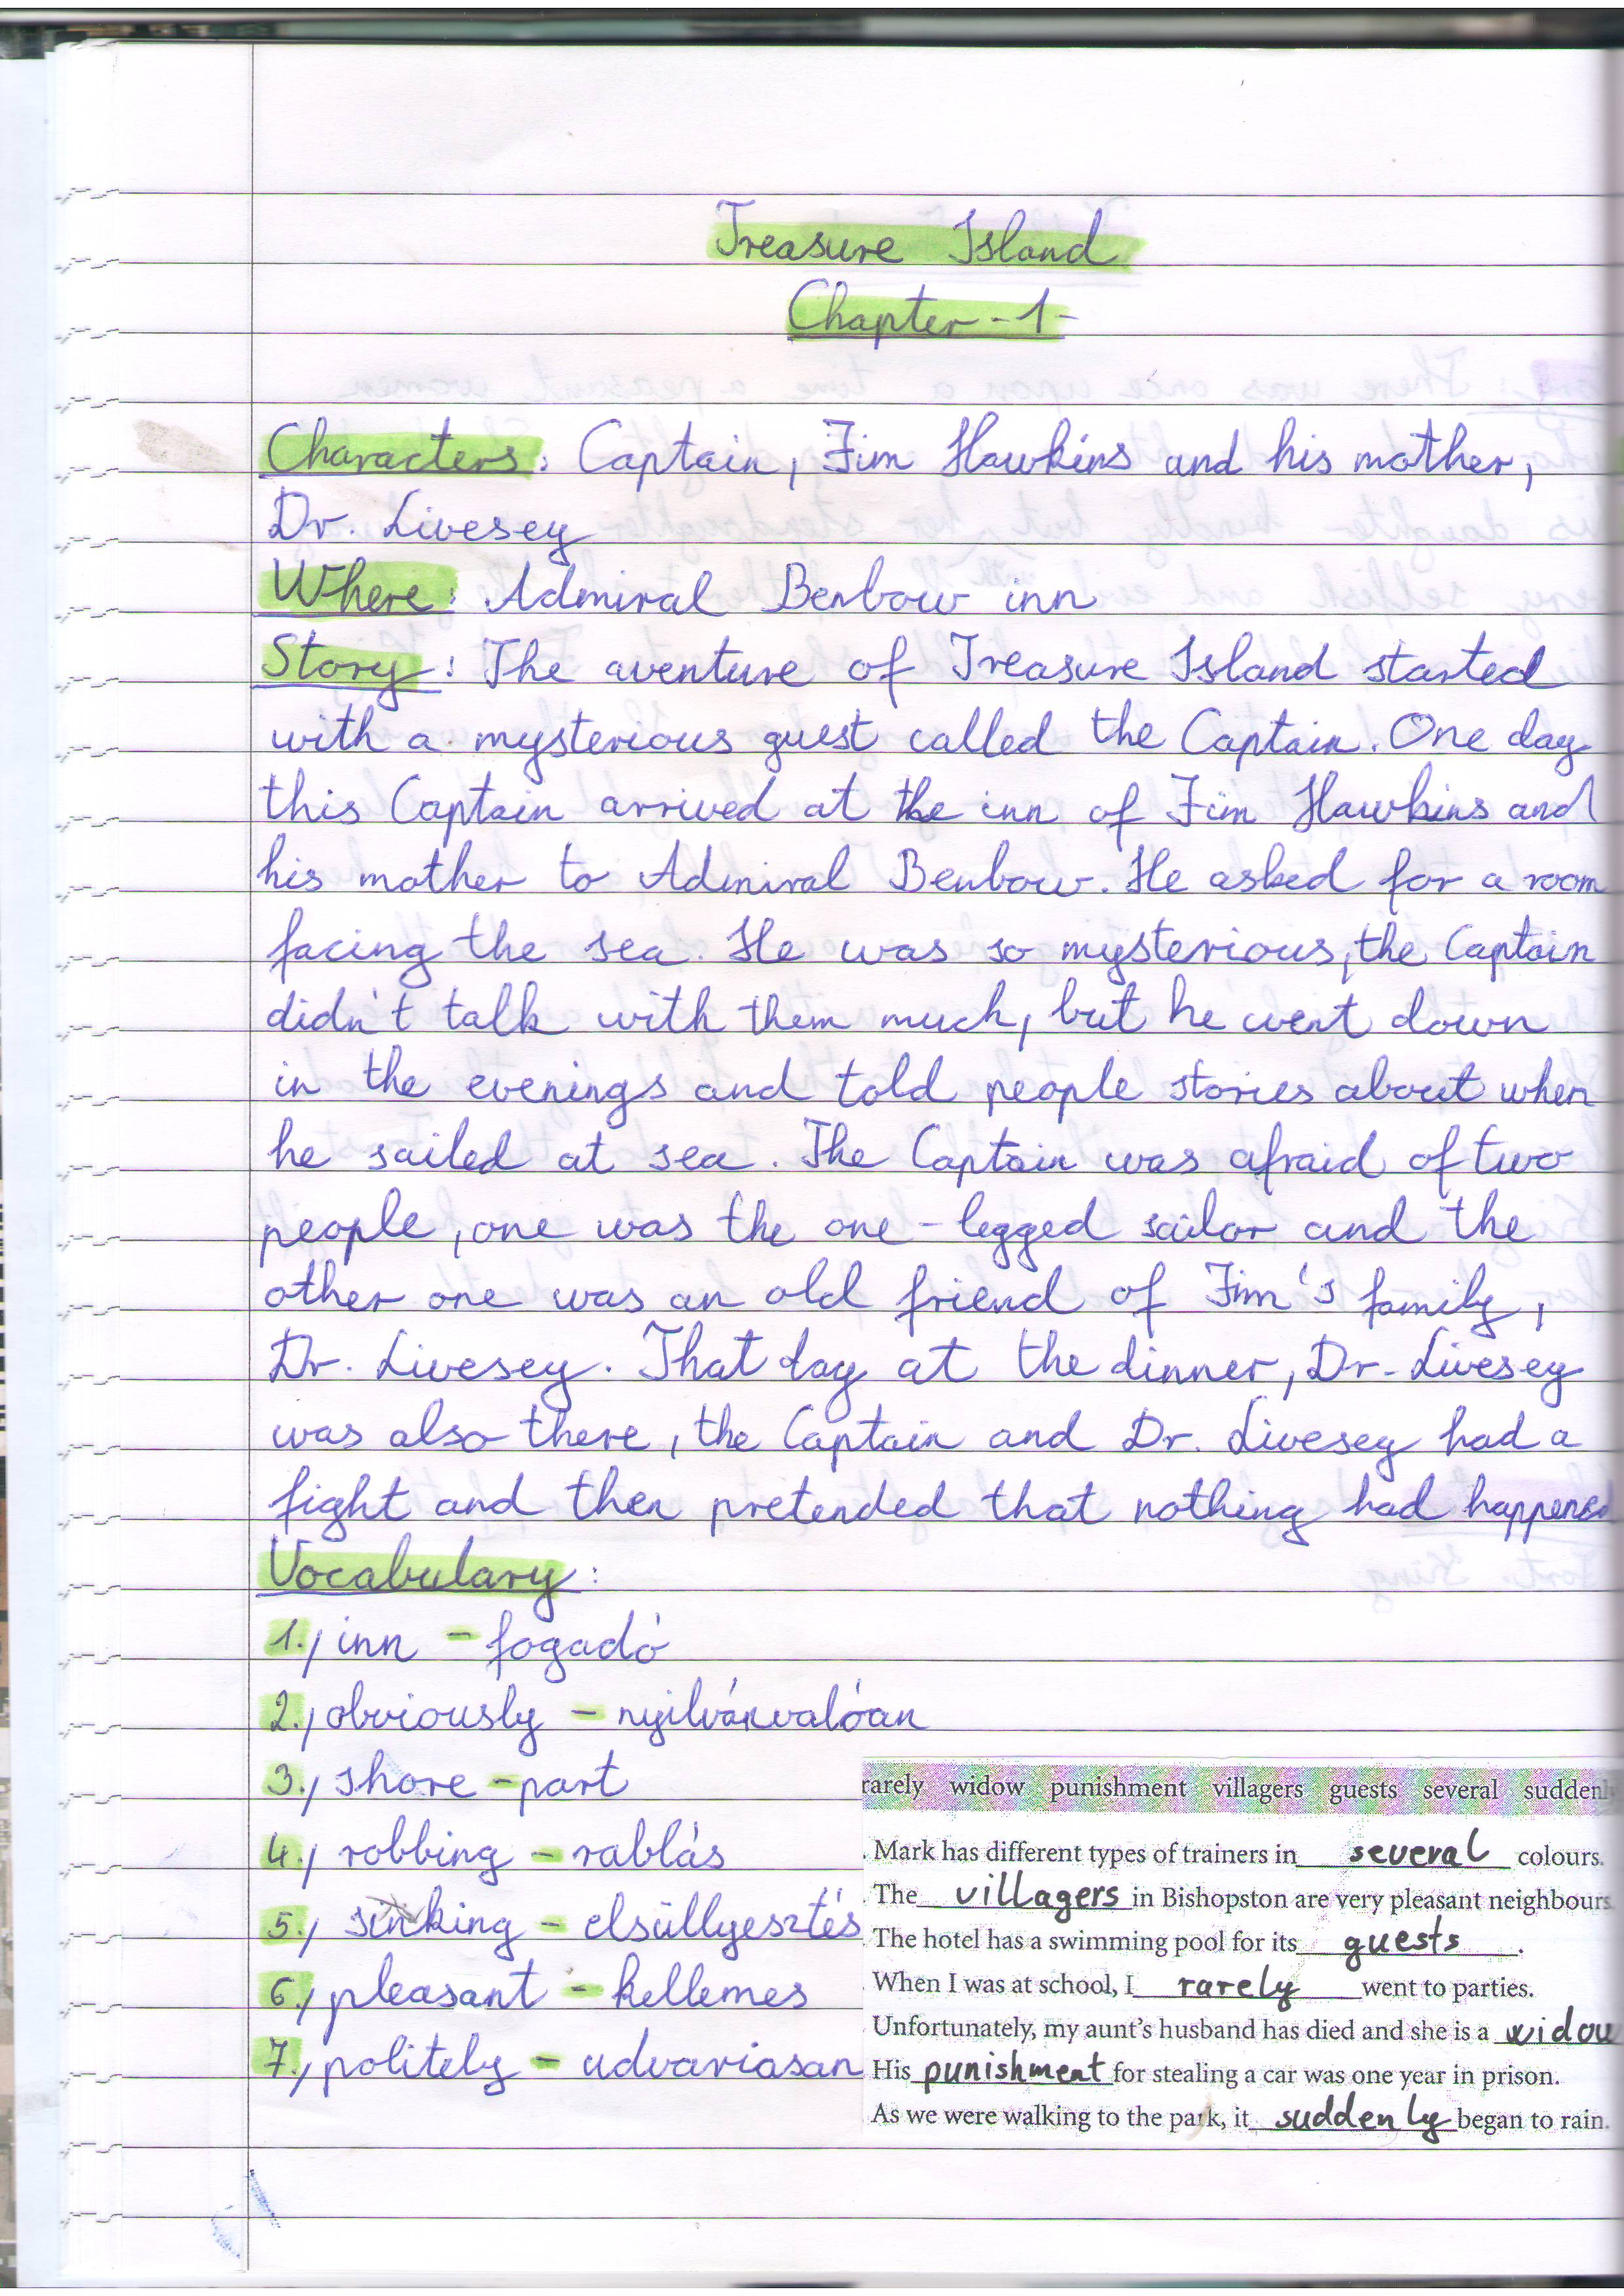 Treasure Island
Chapter -1-
Characters: Captain, Jim Hawkins and his mother,
Dr. Livesey
Where: Admiral Benbow inn
Story: The aventure of Treasure Island started
with a mysterious guest called the Captain. One day
this Captain arrived at the inn of Jim Hawkins and
his mother to Admiral Benbow. He asked for a room
facing the sea. He was so mysterious, the Captain
didn't talk with them much, but he went down
in the evenings and told people stories about when
he sailed at sea. The Captain was afraid of two
people, one was the one-legged sailor and the
other one was an old friend of Jim's family,
Dr. Livesey. That day at the dinner, Dr. Livesey
was also there, the Captain and Dr. Livesey had a
fight and then pretended that nothing had happened
Vocabulary:
1., inn - fogadó
2., obviously - nyilvánvalóan
3., shore - part
4., robbing - rablás
5., sinking - elsüllyesztés
6., pleasant - kellemes
7., politely - udvariasan
rarely widow punishment villagers guests several sudden
. Mark has different types of trainers in several colours.
. The villagers in Bishopston are very pleasant neighbours
. The hotel has a swimming pool for its guests.
. When I was at school, I rarely went to parties.
Unfortunately, my aunt's husband has died and she is a widow
His punishment for stealing a car was one year in prison.
As we were walking to the park, it suddenly began to rain.